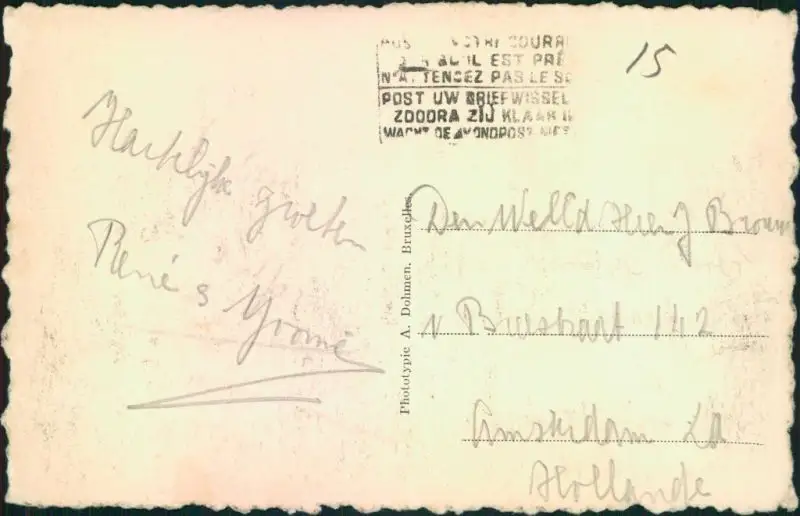 VOTRE COURR
QU'IL EST PRÊ
N'ATTENDEZ PAS LE S
POST UW BRIEFWISSEL
ZODRA ZIJ KLAAR I
WACHT DE AVONDPOST NIET
15
Hartelijke groeten
René & Yvonne
Phototypie A. Dohmen, Bruxelles
Den Heer J Brouw
142
Amsterdam
Hollande